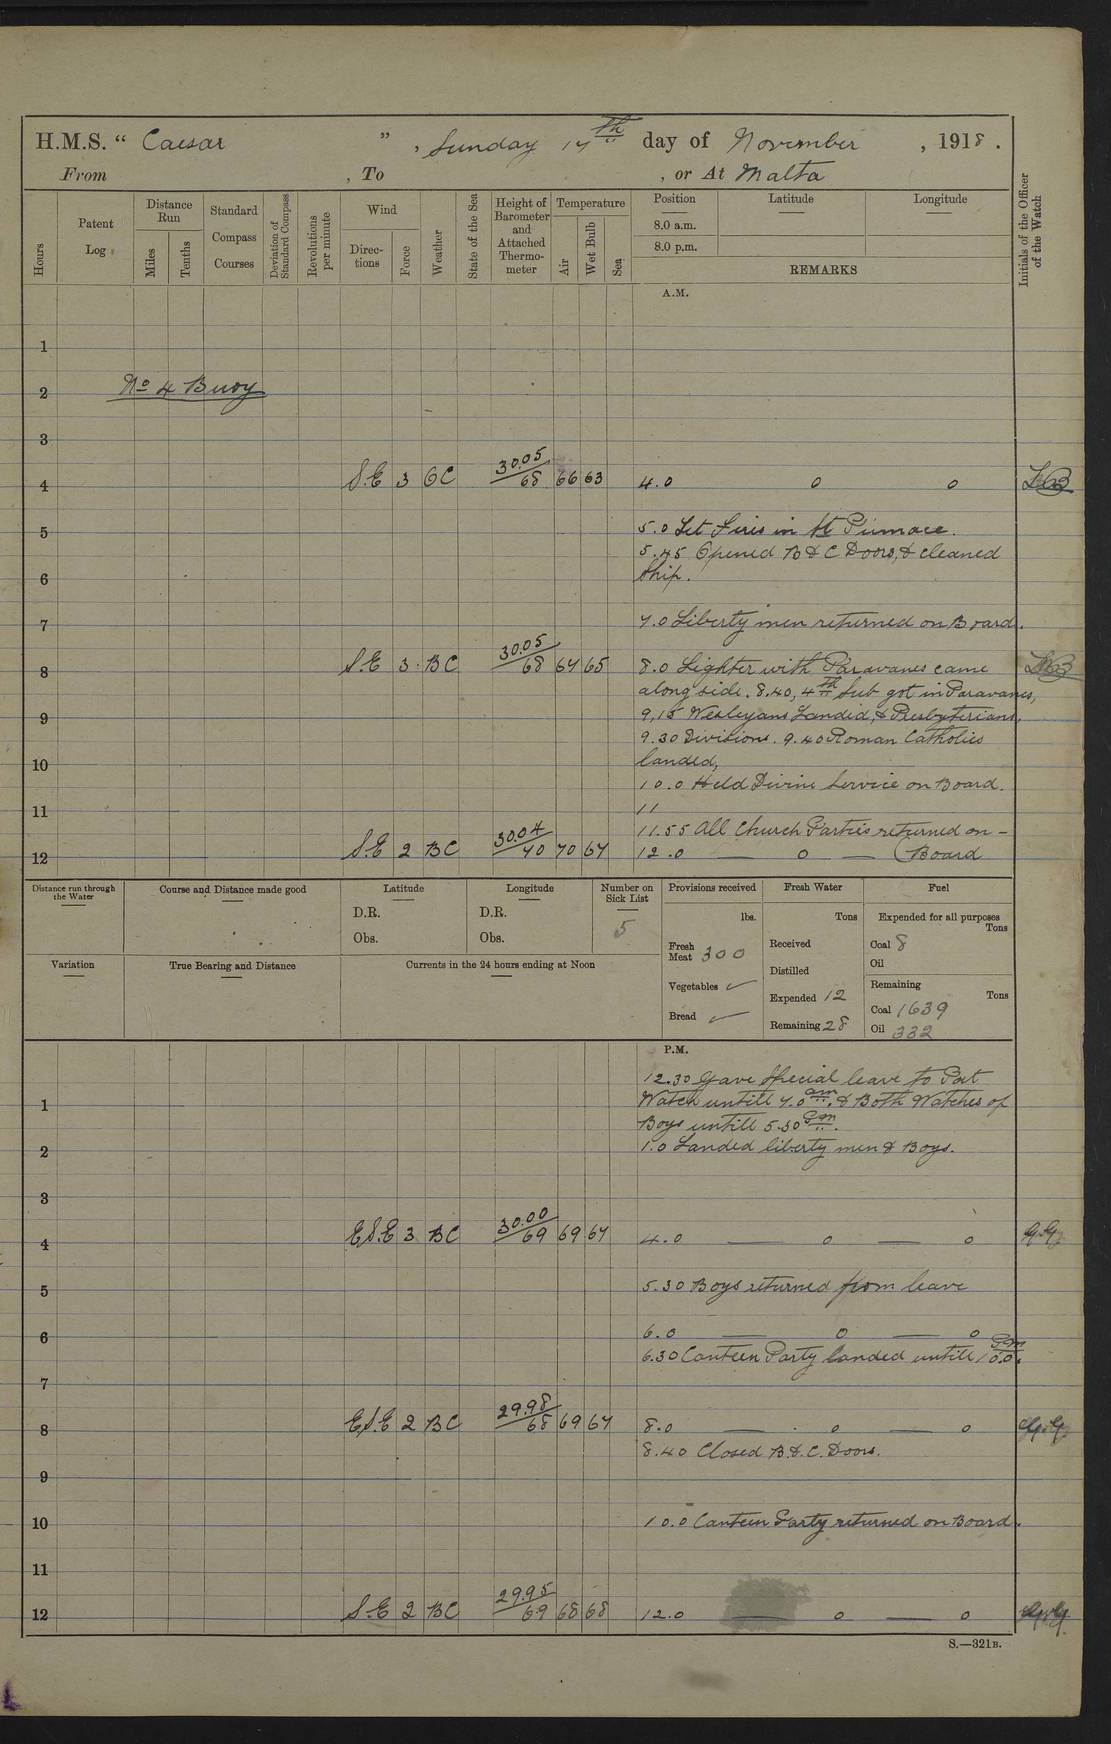 H.M.S. “ Caesar ” , Sunday 17th day of November , 1918 .
From , To , or At Malta
Hours
Patent Log
Distance Run
Miles
Tenths
Standard Compass Courses
Deviation of Standard Compass
Revolutions per minute
Wind
Directions
Force
Weather
State of the Sea
Height of Barometer and Attached Thermometer
Temperature
Air
Wet Bulb
Sea
Position
8.0 a.m.
8.0 p.m.
Latitude
Longitude
REMARKS
Initials of the Officer of the Watch
A.M.
1
No 4 Buoy
2
3
4 S.E 3 BC 30.05/68 66 63 4.0 0 0
5 5.0 Let fires in St Pinnace.
5.45 Opened B & C Doors, & cleaned
6 Ship.
7 7.0 Liberty men returned on Board.
8 S.E 3 BC 30.05/68 67 65 8.0 Lighter with Paravanes came
along side. 8.40, 4th Sub got in Paravanes,
9 9,15 Wesleyans Landed, & Presbyterians.
9.30 Divisions. 9.40 Roman Catholics
10 landed,
10.0 Held Divine Service on Board.
11 11
11.55 All Church Parties returned on –
12 S.E 2 BC 30.04/70 70 67 12.0 — 0 — (Board
Distance run through the Water
Course and Distance made good
Latitude
D.R.
Obs.
Longitude
D.R.
Obs.
Number on Sick List
5
Provisions received
lbs.
Fresh Meat 300
Vegetables ✓
Bread ✓
Fresh Water
Tons
Received
Distilled
Expended 12
Remaining 28
Fuel
Expended for all purposes
Tons
Coal 8
Oil
Remaining
Tons
Coal 1639
Oil 332
Variation
True Bearing and Distance
Currents in the 24 hours ending at Noon
P.M.
12.30 Gave Special leave to Port
1 Watch untill 7.0 am. & Both Watches of
Boys untill 5.30 Pm.
2 1.0 Landed liberty men & Boys.
3
4 E.S.E 3 BC 30.00/69 69 67 4.0 — 0 — 0 G.G.
5 5.30 Boys returned from leave
6 6.0 — 0 — 0
6.30 Canteen Party landed untill 10.0 Pm.
7
8 E.S.E 2 BC 29.98/68 69 67 8.0 — 0 — 0 G.G.
8.40 Closed B.&.C. Doors.
9
10 10.0 Canteen Party returned on Board.
11
12 S.E 2 BC 29.95/69 68 68 12.0 — 0 — 0 G.G.
S.—321B.